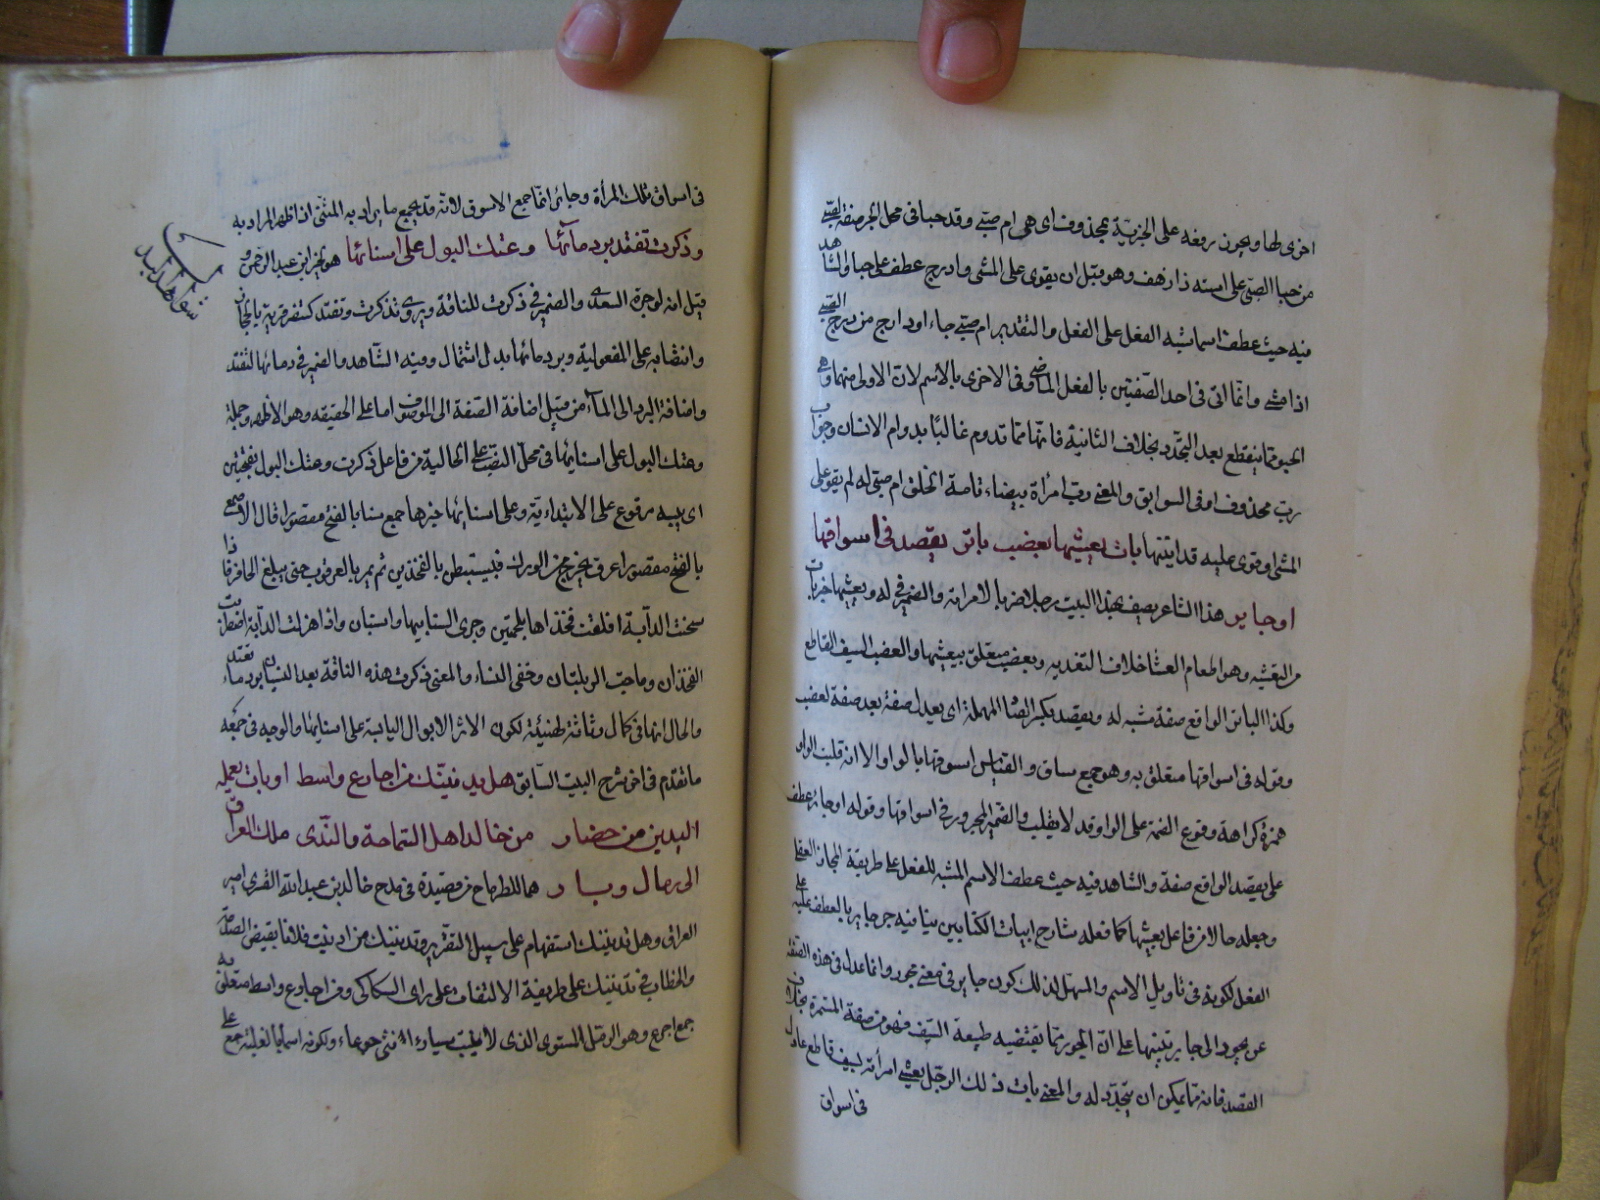 اخرى لها ويجوز رفعه على الخبرية بمحذوف اى هى ام صبى وقد حبا فى محل الجر صفة لصبى
من حبا الصبى على استه اذا زحف وهو قبل ان يقوى على المشى وادرج عطف على حبا والشاهد
فيه حيث عطف اسما شبه الفعل على الفعل والتقدير ام صبى حاب او دارج من درج الصبى
اذا مشى وانما اتى فى احد الصفتين بالفعل الماضى وفى الاخرى بالاسم لان الاولى منهما وهى
الحبو مما ينقطع بعد التجدد بخلاف الثانية فانها مما تدوم غالبًا بدوام الانسان وجواب
رب محذوف او فى السوابق والمعنى رب امرأة بيضاء تامة الخلق ام صبى له لم يقو على
المشى او قوى عليه قد اتيتها بات يعشيها بعضب باتر يقصد فى اسوقها
او جاير هذا الشاعر يصف بهذا البيت رجلا ضربا لامراته والضمير فى له ويعشيها خبر بات
من التعشية وهو اطعام العشا خلاف التغدية وبعضب متعلق بيعشيها والعضب السيف القاطع
وكذا الباتر الواقع صفة مشبه له ويقصد بكسر الصاد المهملة اى يعدل صفة بعد صفة لعضب
وقوله فى اسوقها متعلق به وهو جمع ساق والقياس اسوقها بالواو الا انه قلبت الواو
همزة كراهة وقوع الضمة على الواو قد لا يقلب والضمير المجرور فى اسوقها وقوله او جائر عطف
على يقصد الواقع صفة والشاهد فيه حيث عطف الاسم المشبه للفعل على طريقة المجاز العقلى
وجعله حالا من فاعل يعشيها كما فعله شارح ابيات الكتابين ينافيه جر جاير بالعطف عليه
الفعل لكونه فى تأويل الاسم والمسهل لذلك كون جاير فى معنى يجور وانما عدل فى هذه الصفة
عن يجور الى جاير تنبيها على ان الجور مما يقتضيه طبيعة السيف فهو من صفة المستمرة بخلاف
القصد فانه مما يمكن ان يتجدد له والمعنى بات ذلك الرجل يعشى امرأته بسيف قاطع عادل
فى اسواق
فى اسواق تلك المرأة وجائر انما جمع الاسوق لانه قد يجمع ما يراد به المثنى اذا ظهر المراد به
وذكرت تقتد برد مآئها وعتك البول على انسائها هو لجبر ابن عبد الرحمن و
قيل انه لوجزة السعدى والضمير فى ذكرت للناقة ويروى تذكرت وتقتد كتنفر قرية بالحجاز
وانتصابه على المفعولية وبرد مائها بدل اشتمال وفيه الشاهد والضمير فى دمائها لتقتد
واضافة البرد الى المآء من قبيل اضافة الصفة الى الموصوف اما على الحقيقه وهو الاظهر وجملة
وعتك البول على انسائها فى محل النصب على الحالية من فاعل ذكرت وعتك البول بفتحتين
اى يبسه مرفوع على الابتدائية وعلى انسائها خبرها جمع نسا بالفتح مقصورا قال الاصمعى
بالفتح مقصورا عرق يخرج من الورك فيستبطن بالفخذين ثم يمر بالعرقوب حتى يبلغ الحافر فاذا
سمنت الدآبة انفلقت فخذاها بلحمتين وجرى النسا بينهما واستبان واذا هزلت الدآبة اضطربت
الفخذان وماجت الربلتان وخفى النساء والمعنى ذكرت هذه الناقة بعد النسيان برد ماء تقتد
والحال انها فى كمال وثاثة لهيئية لكون الاثر الابوال اليابسة على انسائها والوجه فى جمعه
ما تقدم فى اخر شرح البيت السابق هل يدنينك من اجارع واسط اوبات يعمله
اليدين من حضار من خالد اهل السماحة والندى ملك العراق
الى رمال وبار هما للطرماح من قصيدة فى مدح خالد بن عبد الله القسرى امير
العراق وهل تدنينك استفهام على سبيل التقرير وتدنينك من ادنيت فلانا نقيض اقصيته
والخطاب فى تدنينك على طريقة الالتفات على راى السكاكى ومن اجارع واسط متعلق به
جمع اجرع وهو الرمل المستوى الذى لا ينبت شياء انثى جرعاء ولكونه اسما بالغلبة جمع على